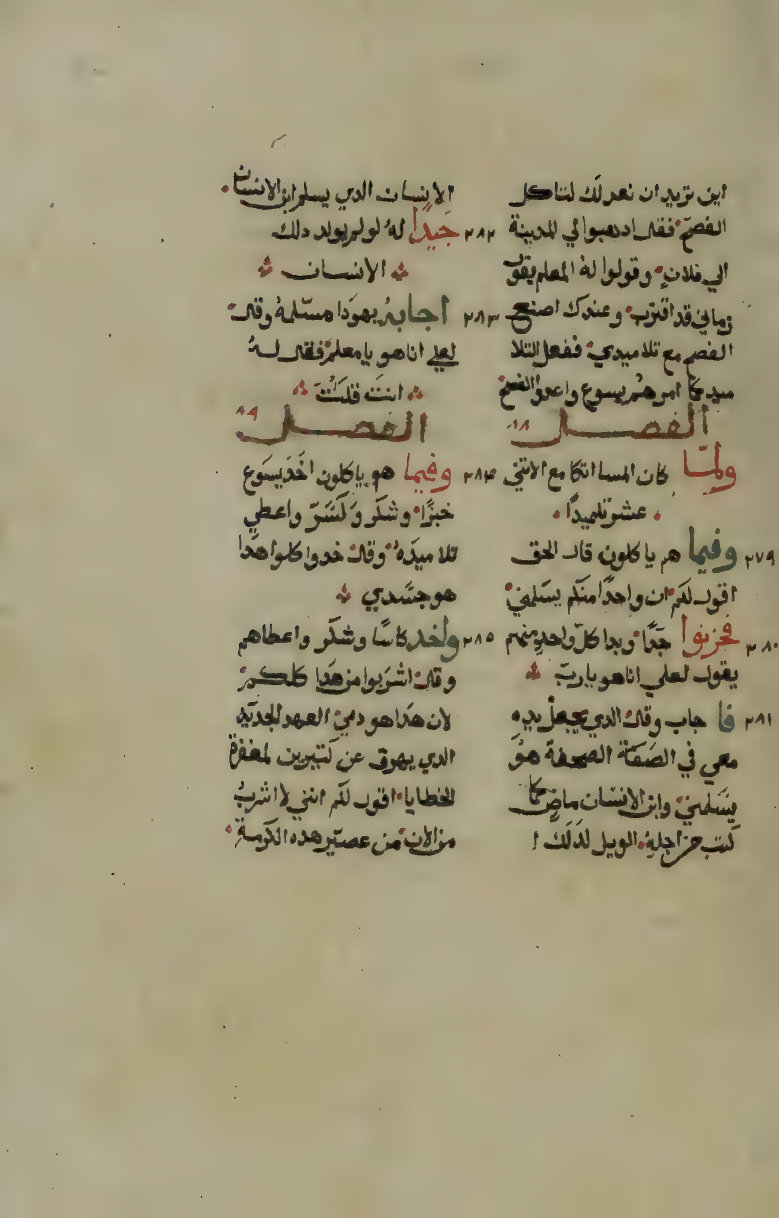 اين تريد ان نعد لك لناكل
الفصح فقال ادهبوا الي المدينة
الي فلان وقولوا له المعلم يقول
زماني قد اقترب وعندك اصنع
الفصح مع تلاميدي ففعل التلا
ميد كما امرهم يسوع واعدوا الفصح
الفصل ٨٨
ولما كان المسا اتكا مع الاتني
عشر تلميدا
٢٧٩ وفيما هم ياكلون قال الحق
اقول لكم ان واحدا منكم يسلمني
٢٨٠ فحزنوا جدا وبدا كل واحد منهم
يقول لعلي انا هو يا رب
٢٨١ فا جاب وقال الدي يجعل يده
معي في الصحفة هو
يسلمني وابن الانسان ماض كما
كتب من اجله الويل لدلك ا
الانسان الدي يسلم ابن الانسان
٢٨٢ جيدا له لو لم يولد دلك
الانسان
٢٨٣ اجابه يهودا مسلمه وقال
لعلي انا هو يا معلم فقال له
انت قلت
الفصل ٨٩
٢٨٤ وفيما هو ياكلون اخد يسوع
خبزا وشكر وكسر واعطي
تلاميده وقال خدوا كلوا هدا
هو جسدي
٢٨٥ واخد كاسا وشكر واعطاهم
وقال اشربوا من هدا كلكم
لان هدا هو دمي العهد الجديد
الدي يهرق عن كتيرين لمغفرة
الخطايا اقول لكم انني لا اشرب
من الان من عصير هده الكرمة